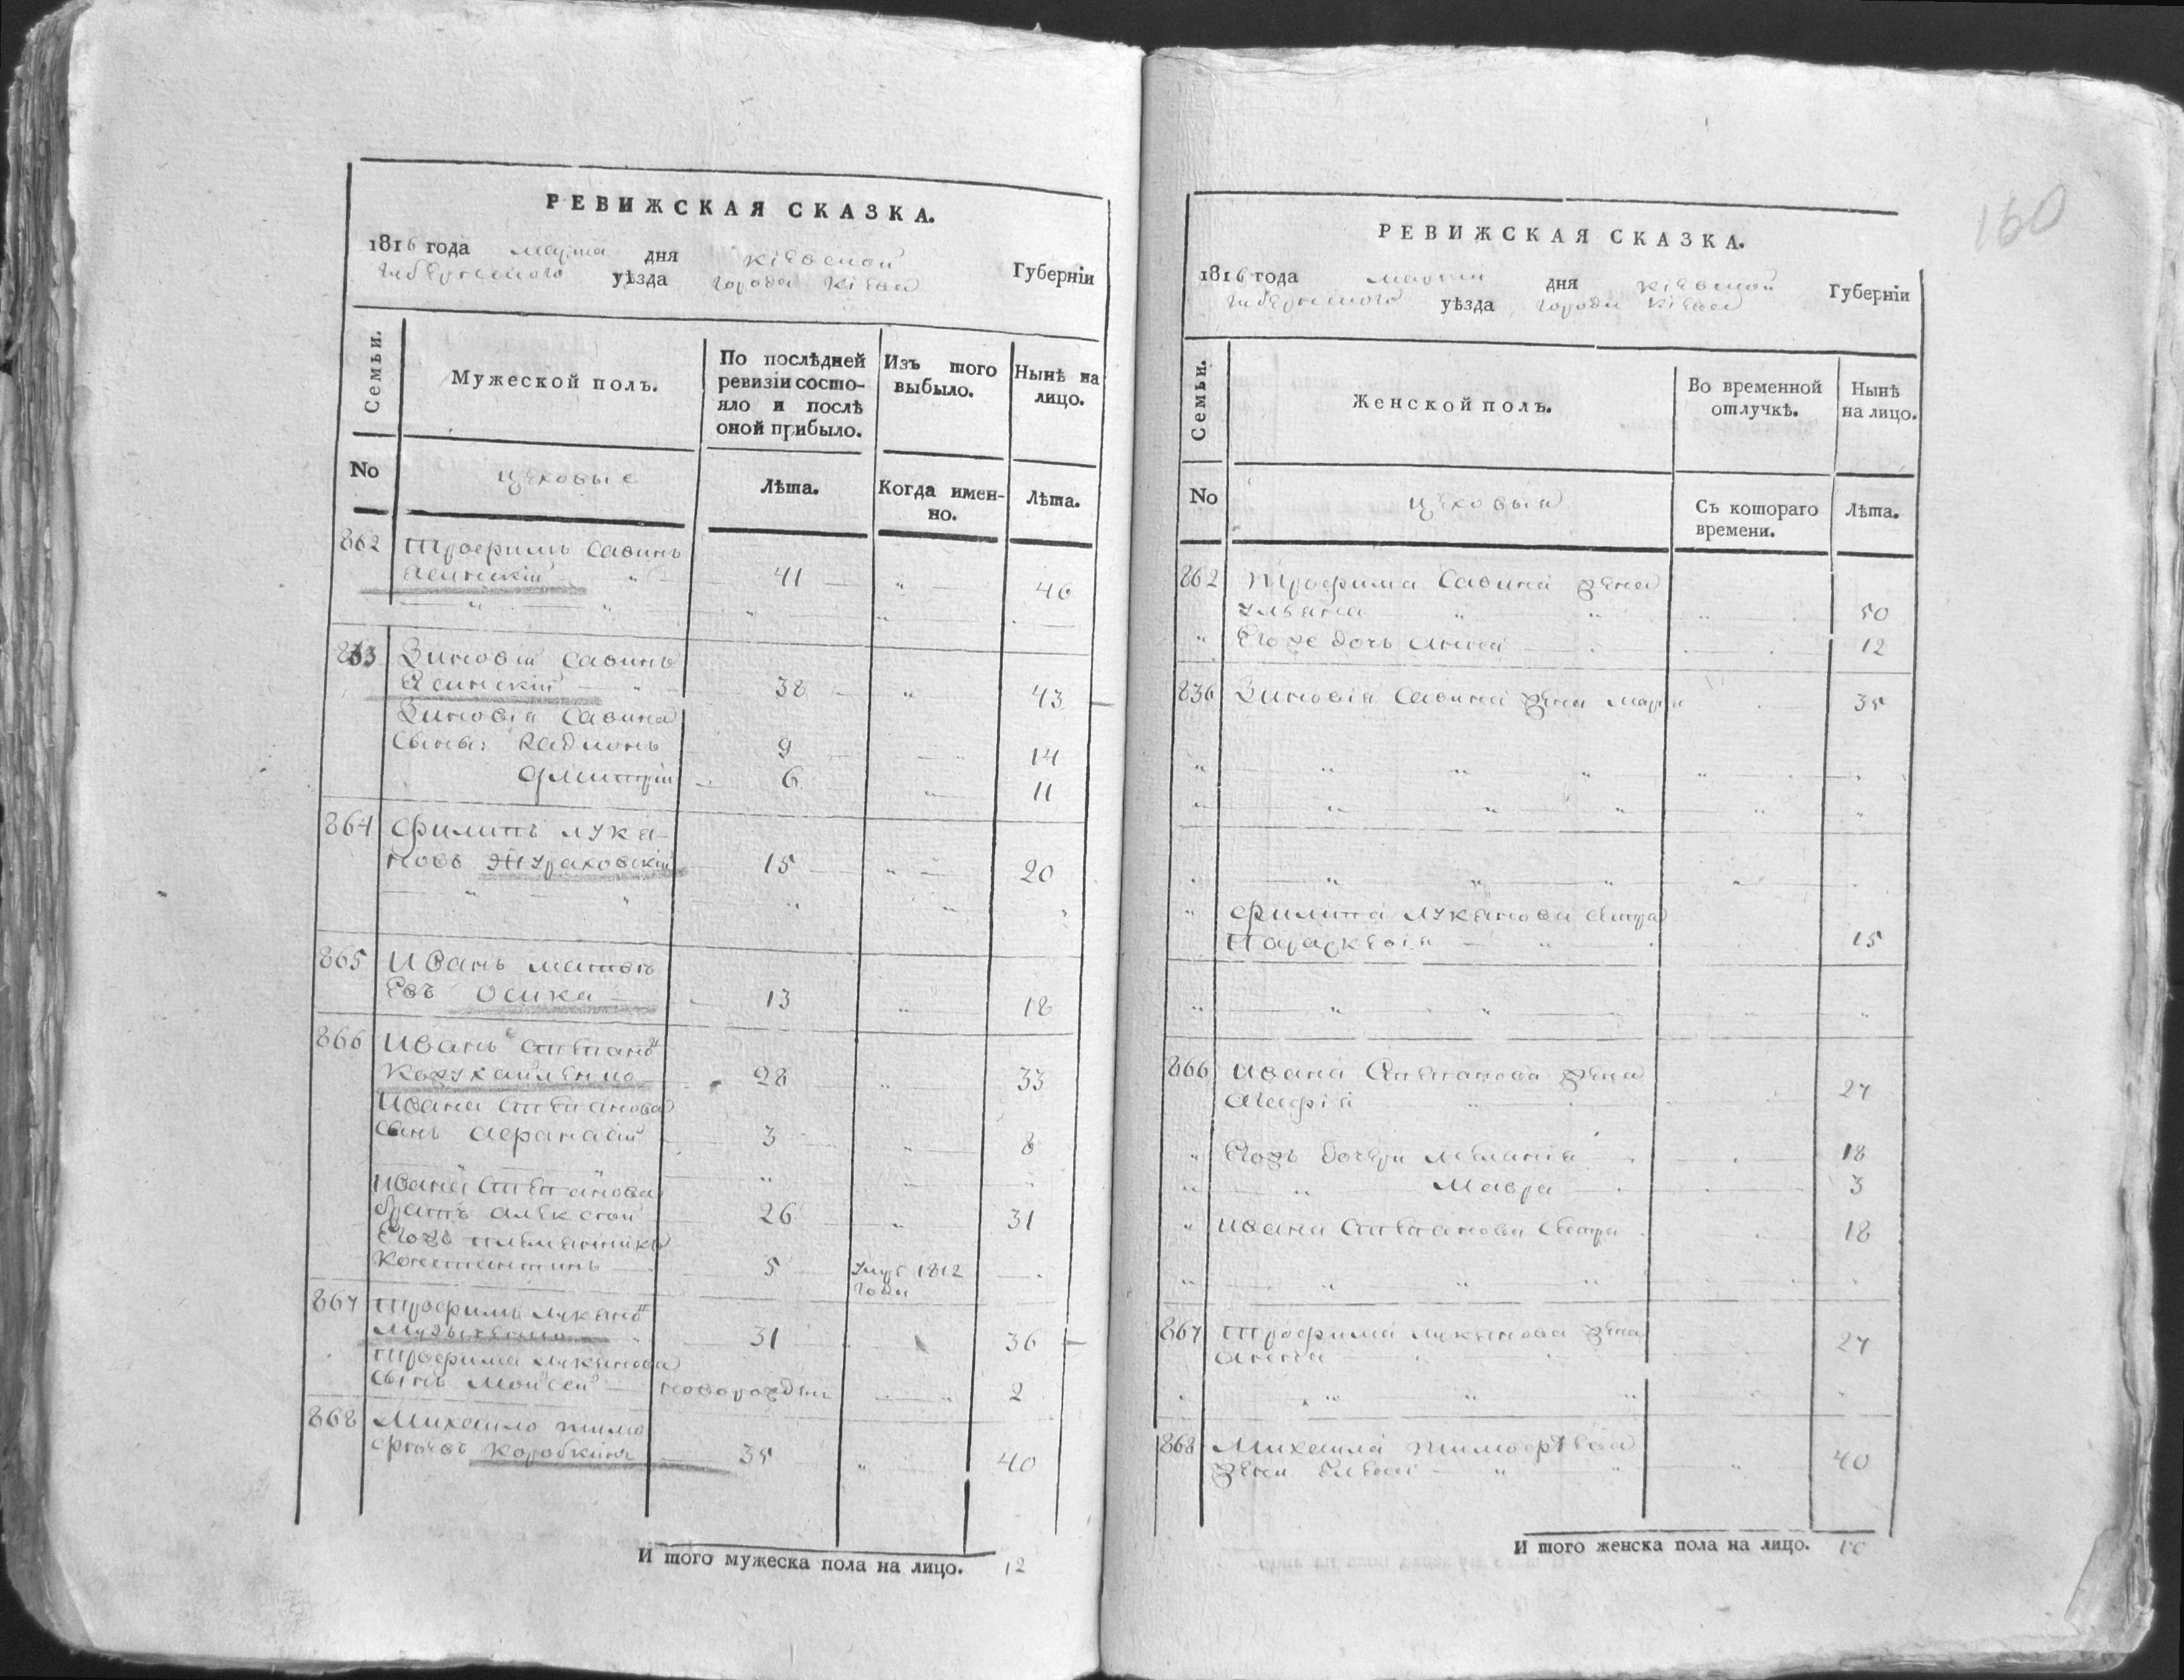 160
РЕВИЖСКАЯ СКАЗКА.
1816 года марта дня Кіевской Губерніи
Губернского уѣзда города Кіева
Семьи.
Мужеской полъ.
По послѣдней ревизіи состо-
яло и послѣ
оной прибыло.
Изъ того
выбыло.
Нынѣ на
лицо.
No
цеховые
Лѣта.
Когда имен-
но.
Лѣта.
862 Трофимъ Савинъ
Ясинскій 41 46
863 Зиновій Савинъ
Ясинскій 38 43
Зиновія Савина
сыны: Радионъ 9 14
Дмитрій 6 11
864 Филипъ Лукя-
новъ Жураховскій 15 20
865 Иванъ Матвѣ
евъ Осика 13 18
866 Иванъ Степано
28 33
Ивана Степанова
сынъ Афанасій 3 8
Ивана Степанова
братъ Алексѣй 26 31
Егожъ племянникъ
Константинъ 5 умре 1812
года
867 Трофимъ Лукяно
31 36
Трофима Лукянова
сынъ Мойсей новорожден 2
868 Михайло Тимо
фѣевъ Коробкинъ 35 40
И того мужеска пола на лицо. 12
РЕВИЖСКАЯ СКАЗКА.
1816 года марта дня Кіевской Губерніи
Губернского уѣзда города Кіева
Семьи.
Женской полъ.
Во временной
отлучкѣ.
Нынѣ
на лицо.
No
цеховыя
Съ котораго
времени.
Лѣта.
862 Трофима Савина жена
Ульяна 50
Его же дочь Анна 12
836 Зиновія Савина жена Марья 35
Филипа Лукянова сестра
Параскевія 15
866 Ивана Степанова жена
Агафія 27
Егожъ дочери Меланія 18
Мавра 3
Ивана Степанова сестра 18
867 Трофима Лукянова жена
Анна 27
868 Михайла Тимофѣева
жена Елена 40
И того женска пола на лицо. 10